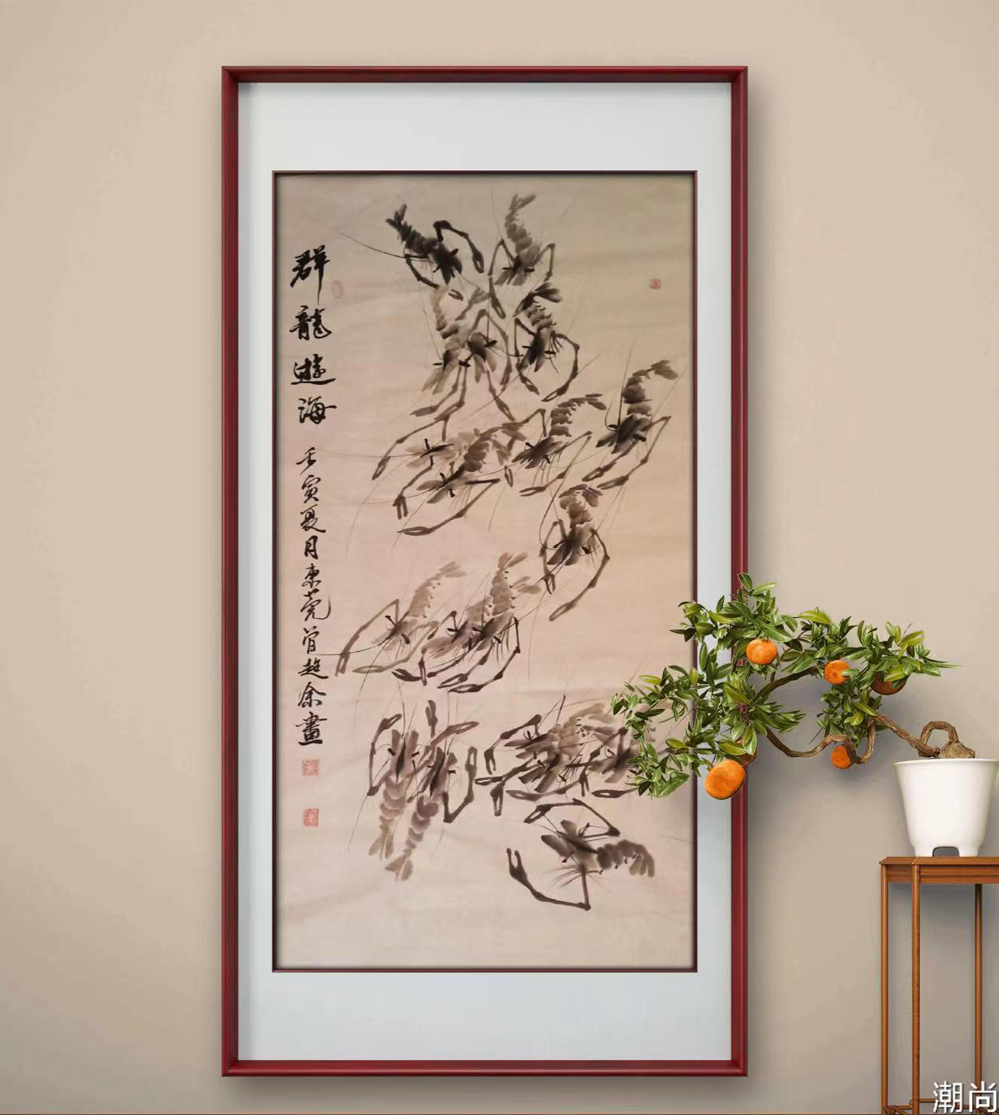 群龍遊海
壬寅夏月東莞曾超余畫
潮尚